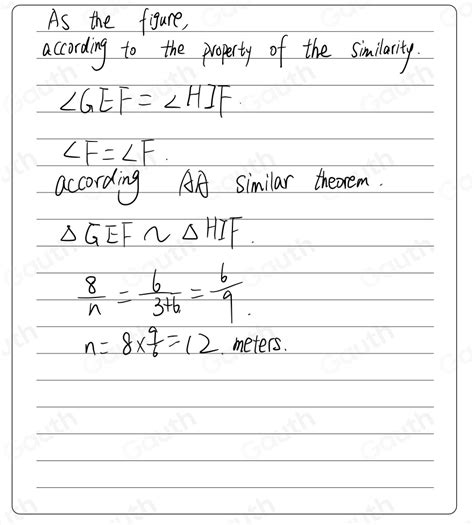 As the figure,
according to the property of the similarity.
∠GEF = ∠HIF.
∠F = ∠F.
according AA similar theorem.
△GEF ~ △HIF.
8/n = 6/(3+6) = 6/9.
n = 8 × 9/6 = 12. meters.